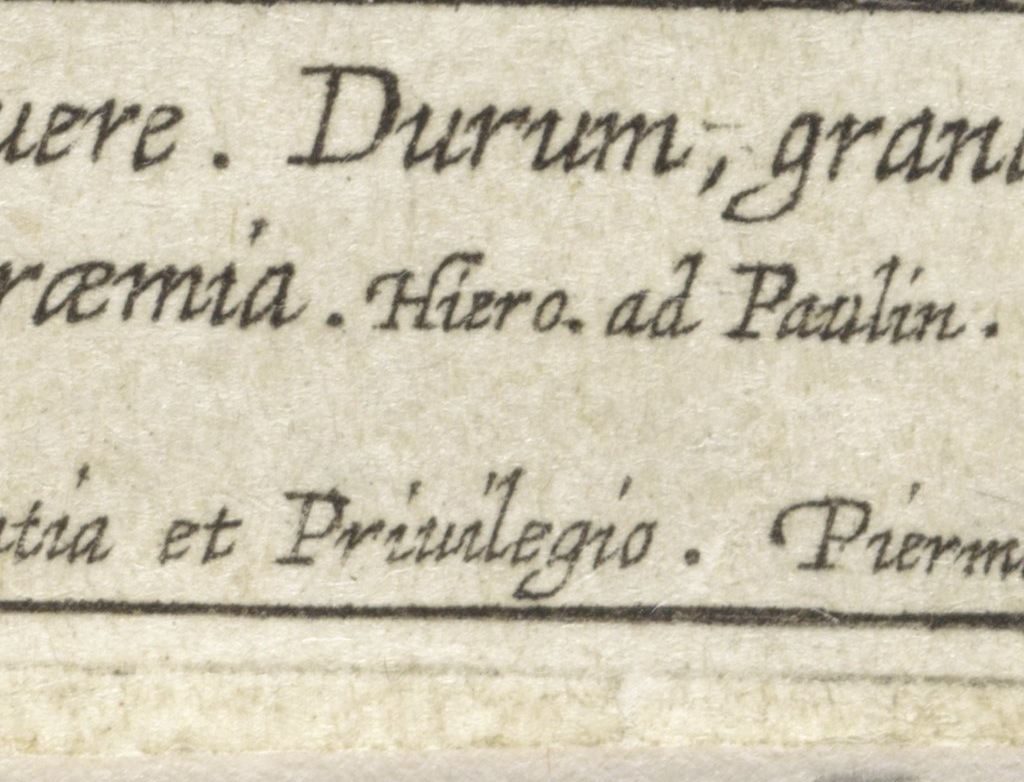 uere. Durum, grand
ræmia. Hiero. ad Paulin.
tia et Priuilegio. Pierm